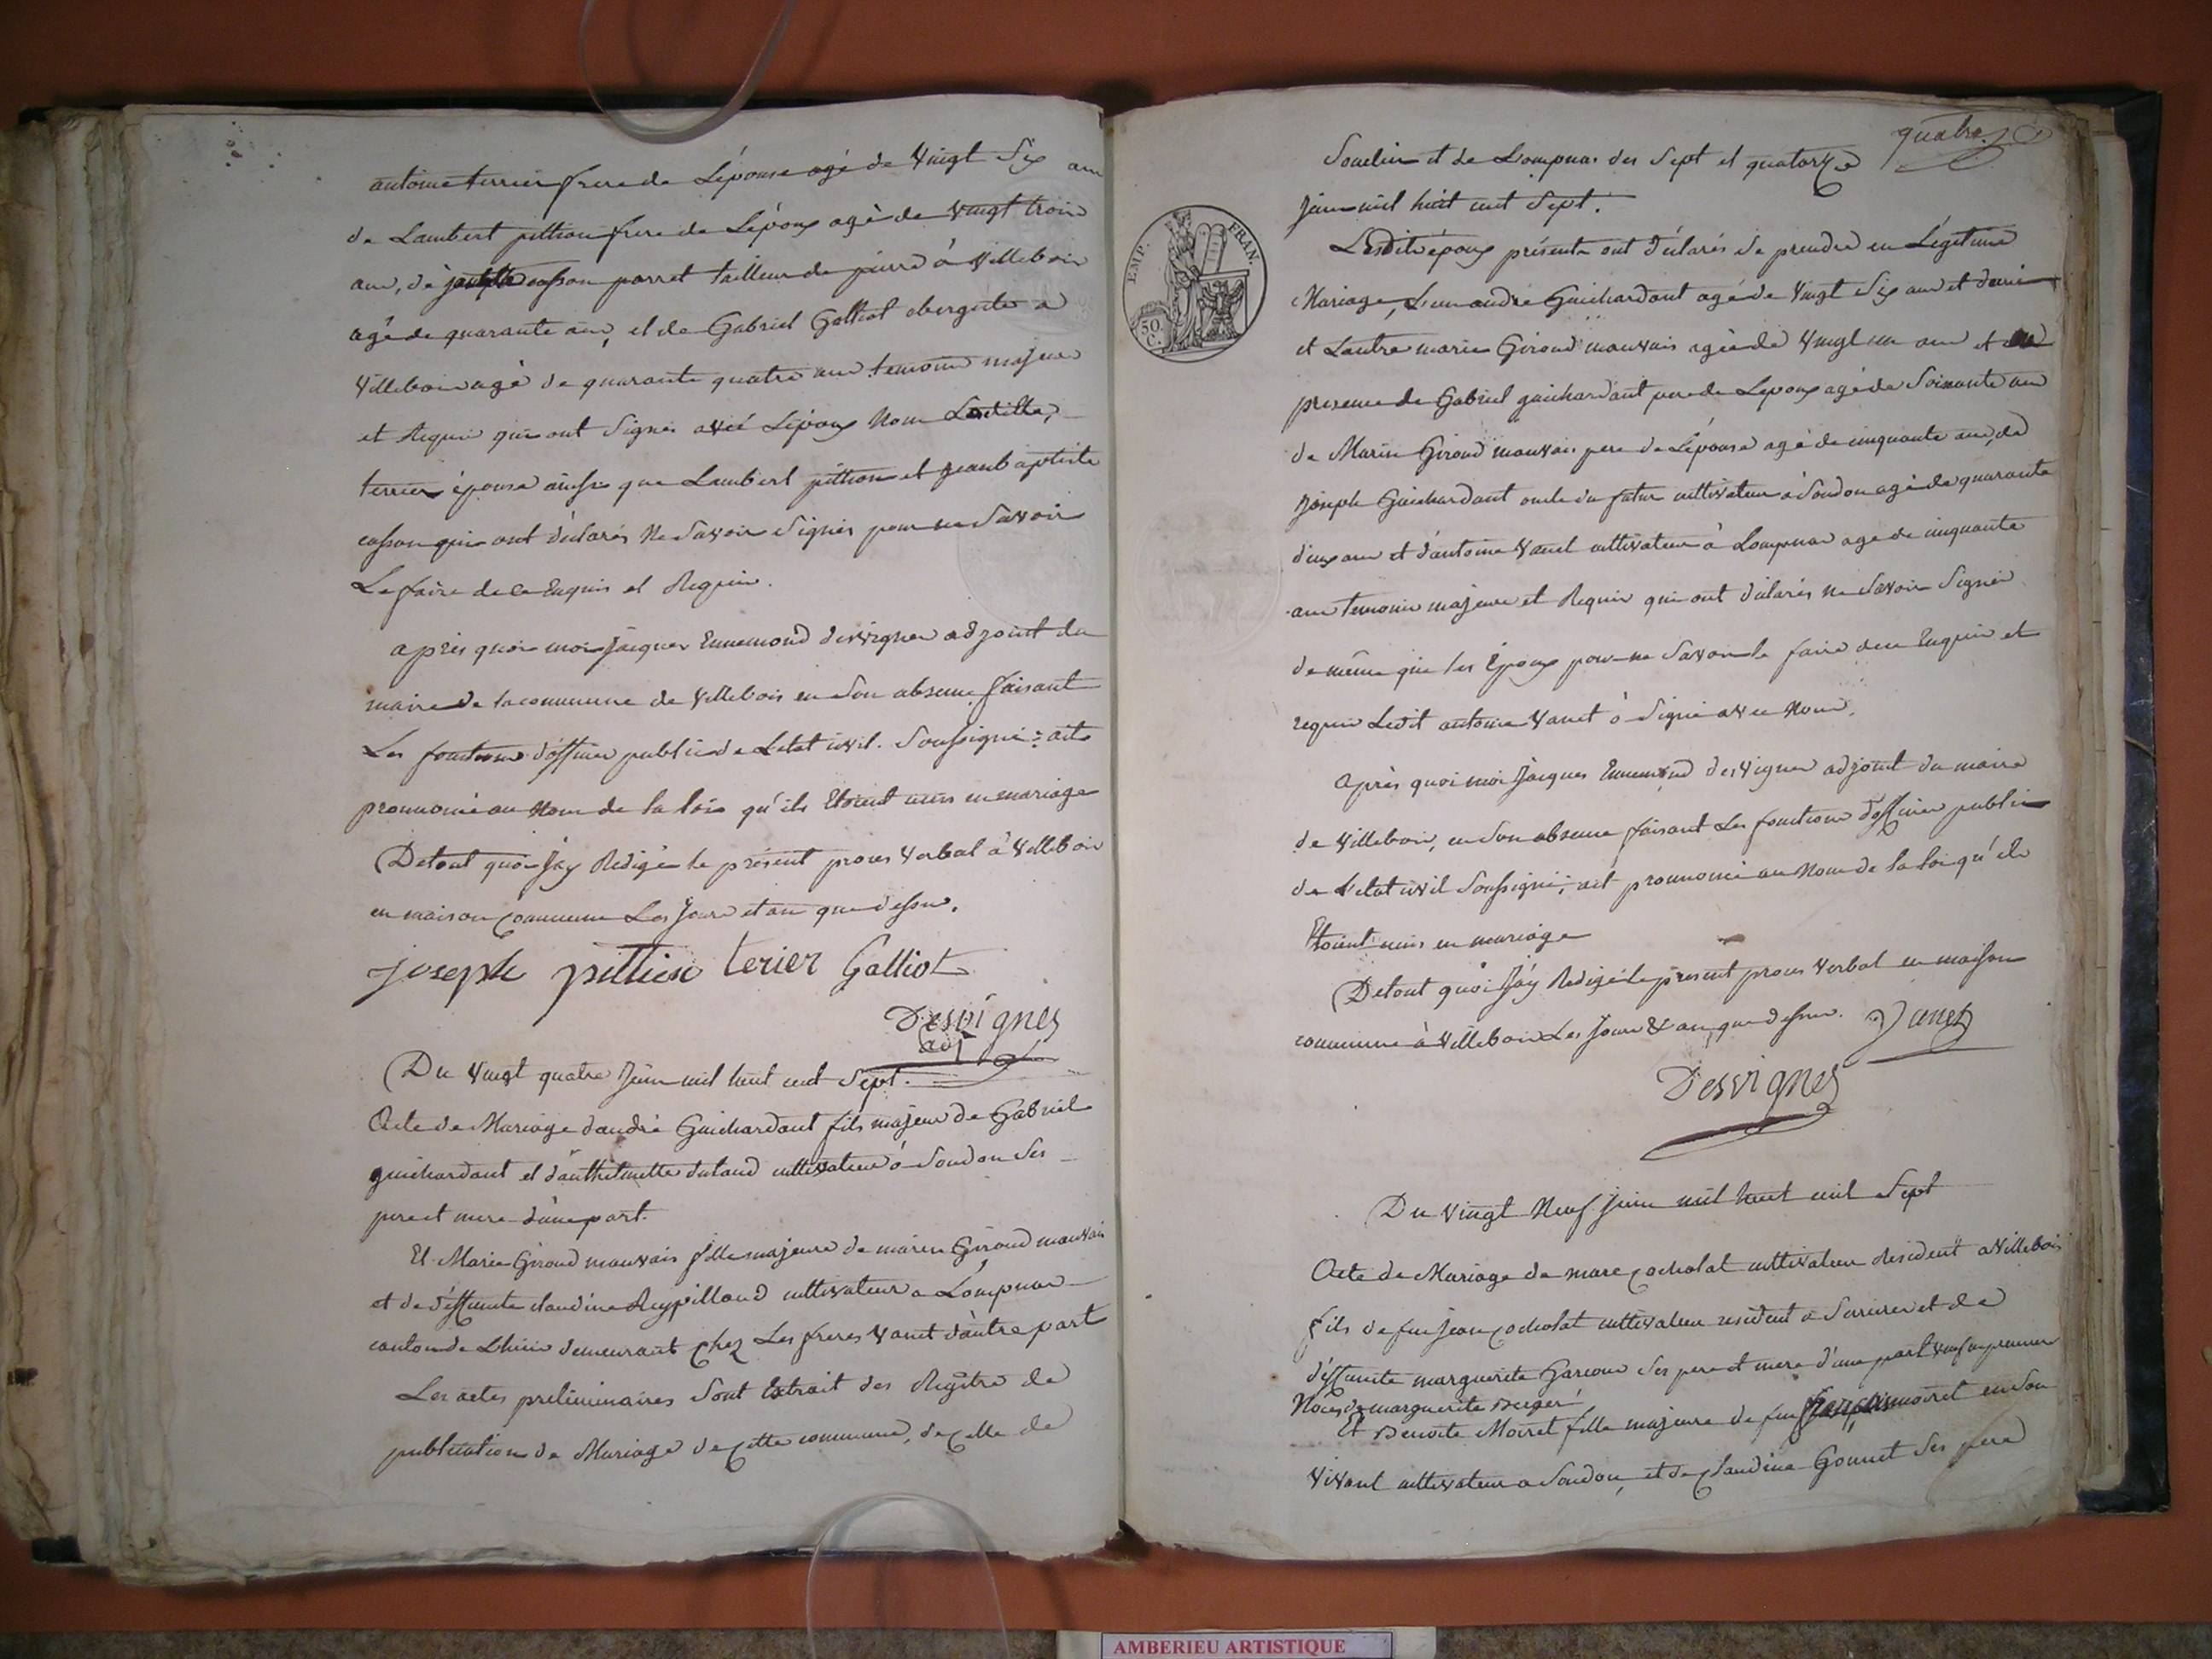 antoine terrier frere de L'épouse agé de Vingt Six ans
de Lambert pittion frere de L'époux agé de Vingt trois
ans, de casson parret tailleur de pierre à Villebois
agé de quarante ans, et de Gabriel Galliot obergiste a
Villebois agé de quarante quatre ans temoins majeurs
et Requis qui ont Signés avec L'époux Non Laditte
terrier épouse ainsi que Lambert pittion et jean baptiste
casson qui ont déclarés Ne Savoir Signer pour ne Savoir
Le faire de ce Enquis et Requis.
après quoi moi Jacques Ennemond desvignes adjoint du
maire de la commune de Villebois en Son absence faisant
Les fonctions d'officier public de L'etat civil Soussigné: ait
prononcé au Nom de la loi qu'ils Etoient unis en mariage
De tout quoi J'ay Rédigé le présent procès Verbal à Villebois
en maison commune Les Jour et an que dessus.
joseph pittion terier Galliot
Desvignes
adj
Du Vingt quatre Juin mil huit cent Sept.
Acte de Mariage d'andré Guichardant fils majeur de Gabriel
guichardant et d'anthelmette dutaud cultivateur à Soudon Ses
pere et mere d'une part.
Et Marie Giroud mauvais fille majeure de marin Giroud mauvais
et de déffunte claudine Reypilloud cultivateur a Lompnas
canton de Lhuis demeurant chez Les freres Vanet d'autre part
Les actes preliminaires Sont Extrait des Régitre de
publication de Mariage de cette commune, de celle de
quatre
Souclin et de Lompnas des Sept et quatorze
Juin mil huit cent Sept.
Lesdits époux présents ont déclarés Se prendre en Légitime
Mariage, L'un andré Guichardant agé de Vingt Six ans et demi
et L'autre marie Giroud mauvais agée de Vingt un ans et en
presence de Gabriel guichardant pere de L'epoux agé de Soixante ans
de Marin Giroud mauvais pere de L'épouse agé de cinquante ans, de
Joseph Guichardant oncle du futur cultivateur à Soudon agé de quarante
deux ans et d'antoine Vanet cultivateur à Lompnas agé de cinquante
ans temoins majeurs et Requis qui ont déclarés ne Savoir Signer
de même que les Epoux pour ne Savoir le faire de ce Enquis et
requis Ledit antoine Vanet à Signé avec Nous.
après quoi moi Jacques Ennemond desvignes adjoint du maire
de Villebois, en Son absence faisant Les fonctions d'officier public
de L'etat civil Soussigné; ait prononcé au Nom de la loi qu'ils
Etoient unis en mariage
De tout quoi J'ay Redigé le présent procès Verbal en maison
commune à Villebois Les Jour & an que dessus. Vanet
Desvignes
EMP. FRAN.
50.
C.
Du Vingt Neuf Juin mil huit cent Sept
Acte de Mariage de marc cocholat cultivateur résident a Villebois
fils de feu Jean cocholat cultivateur resident a Serrieres et de
déffunte marguerite Garcon Ses pere et mere d'une part veuf en premiere
Noces de marguerite Berger
Et Benoite Moiret fille majeure de feu françois moiret en Son
Vivant cultivateur a Soudon, et de claudine Gonnet Ses pere
AMBERIEU ARTISTIQUE